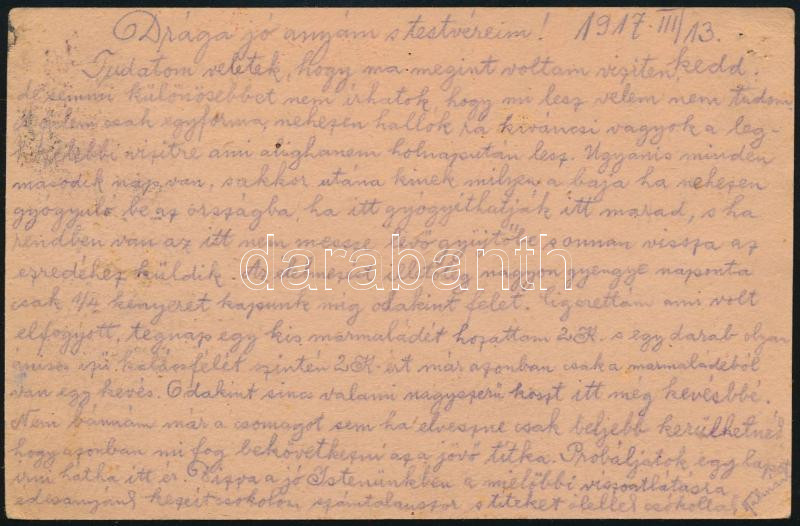 Drága jó anyám s testvéreim! 1917. III/13.
Tudatom veletek, hogy ma megint voltam viziten, kedd.
de semmi különösebbet nem írhatok, hogy mi lesz velem nem tudom.
csak egyforma, nehezen hallok rá kiváncsi vagyok a leg-
közelebbi vizitre ami alighanem holnapután lesz. Ugyanis minden
második nap van, s akkor utána kinek milyen a baja ha nehezen
gyógyuló be az országba, ha itt gyógyíthatják itt marad, s ha
rendben van az itt nem messze lévő gyüjtőbe, s onnan vissza az
ezredéhez küldik. Az élelmezés itt nagyon gyenge naponta
csak 1/4 kenyeret kapunk míg odakint felet. Cigerettám ami volt
elfogyott, tegnap egy kis mármaládét hozattam 2K. s egy darab olyan
ánizs izü kalácsfélét szintén 2K. ért már azonban csak a marmaládéból
van egy kevés. Odakint sincs valami nagyszerű koszt itt még kevésbbé.
Nem bánnám már a csomagot sem ha elveszne csak beljebb kerülhetnék
hogy azonban mi fog bekövetkezni az a jövő titka. Próbáljatok egy lapot
írni hátha itt ér. Bízva a jó Istenünkben a mielőbbi viszontlátásra
édesanyám kezeit csókolom számtalanszor s titeket ölellek csókollak
darabanth